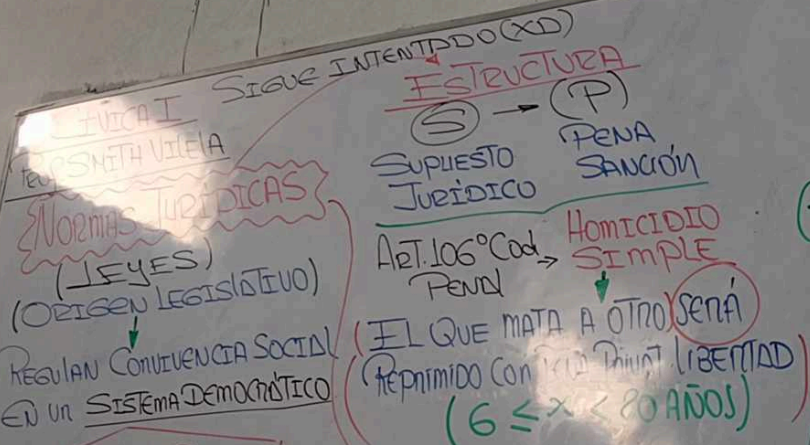 SIGUE INTENTADO (XD)
CÍVICA I
PROF SMITH VILELA
{NORMAS JURÍDICAS}
(LEYES)
(ORIGEN LEGISLATIVO)
REGULAN CONVIVENCIA SOCIAL
EN UN SISTEMA DEMOCRÁTICO
ESTRUCTURA
S → (P)
SUPUESTO JURÍDICO
PENA SANCIÓN
ART. 106° Cod. PENAL → HOMICIDIO SIMPLE
(EL QUE MATA A OTRO) SERÁ
(REPRIMIDO CON PRIVAT. LIBERTAD)
(6 ≤ x < 20 AÑOS)